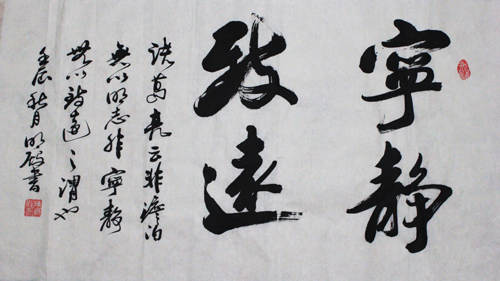 寧靜
致遠
諸葛亮云非澹泊
無以明志非寧靜
無以致遠之謂也
壬辰秋月明書